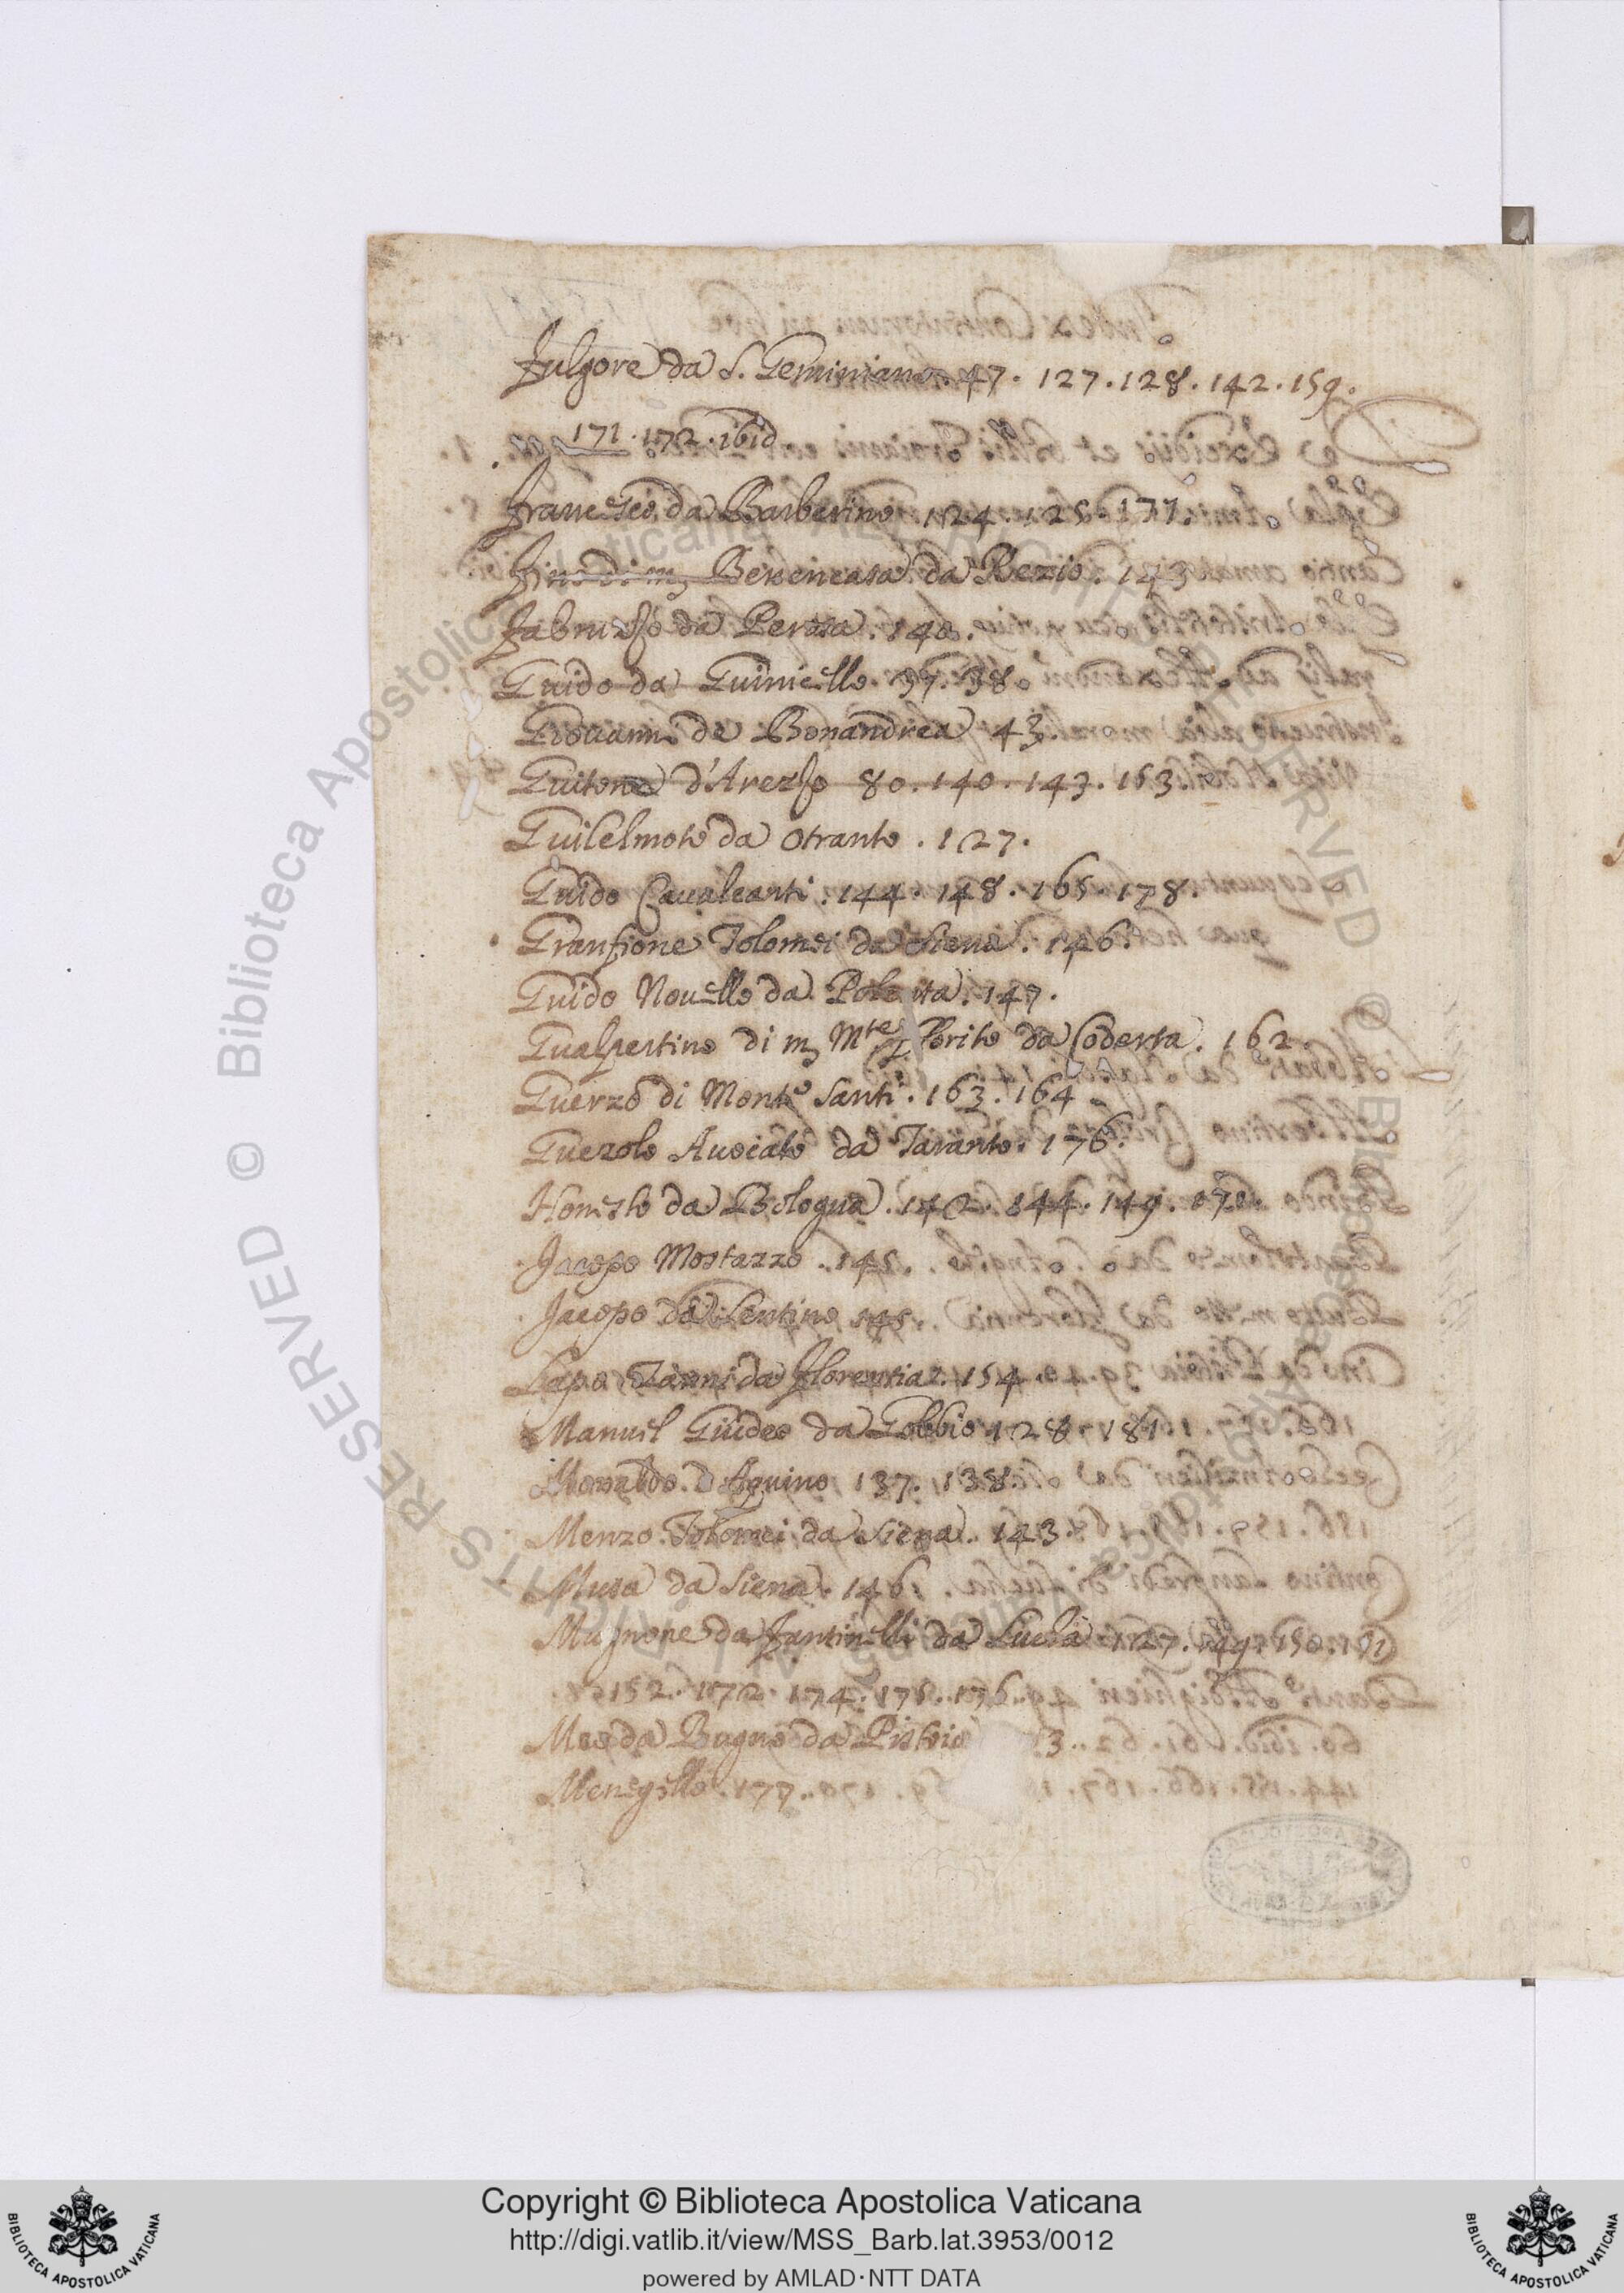 Fulgore da S. Geminiano. 47. 127. 128. 142. 159.
171. 172. ibid
Francesco da Barberino 124. 125. 177.
Fino di m Benencasa da Rezio. 143
Fabruzzo da Perosa. 140.
Guido da Guinicello. 37. 38.
Giouanni de Bonandrea 43.
Guitone d'Arezzo 80. 140. 143. 153.
Guilelmoto da Otranto. 127.
Guido Caualcanti. 144. 148. 165. 178.
Granfione Tolomei da Siena. 146.
Guido Nouello da Polenta. 147.
Gualpertino di m Mte Florito da Coderta. 162.
Guerzo di Monte Santi. 163. 164
Guezolo Auocato da Taranto. 176.
Honesto da Bologna. 142. 144. 149. 170.
Jacopo Mostazzo. 145.
Jacopo da Lentino 145.
Lapo Zanni da Florentia. 154.
Manuel Giudeo da Gobbio 128. 181
Monaldo d'Aquino 137. 138.
Menzo Tolomei da Siena. 143.
Musa da Siena. 146.
Mugnone da Fantinelli da Lucha 127. 149. 150. 151
152. 172. 174. 175. 176.
Meo da Bugno da Pistoia 3.
Menegello. 177.
© Biblioteca Apostolica Vaticana ALL RIGHTS RESERVED
BIBLIOTECA APOSTOLICA VATICANA
Copyright © Biblioteca Apostolica Vaticana
http://digi.vatlib.it/view/MSS_Barb.lat.3953/0012
powered by AMLAD·NTT DATA
BIBLIOTECA APOSTOLICA VATICANA